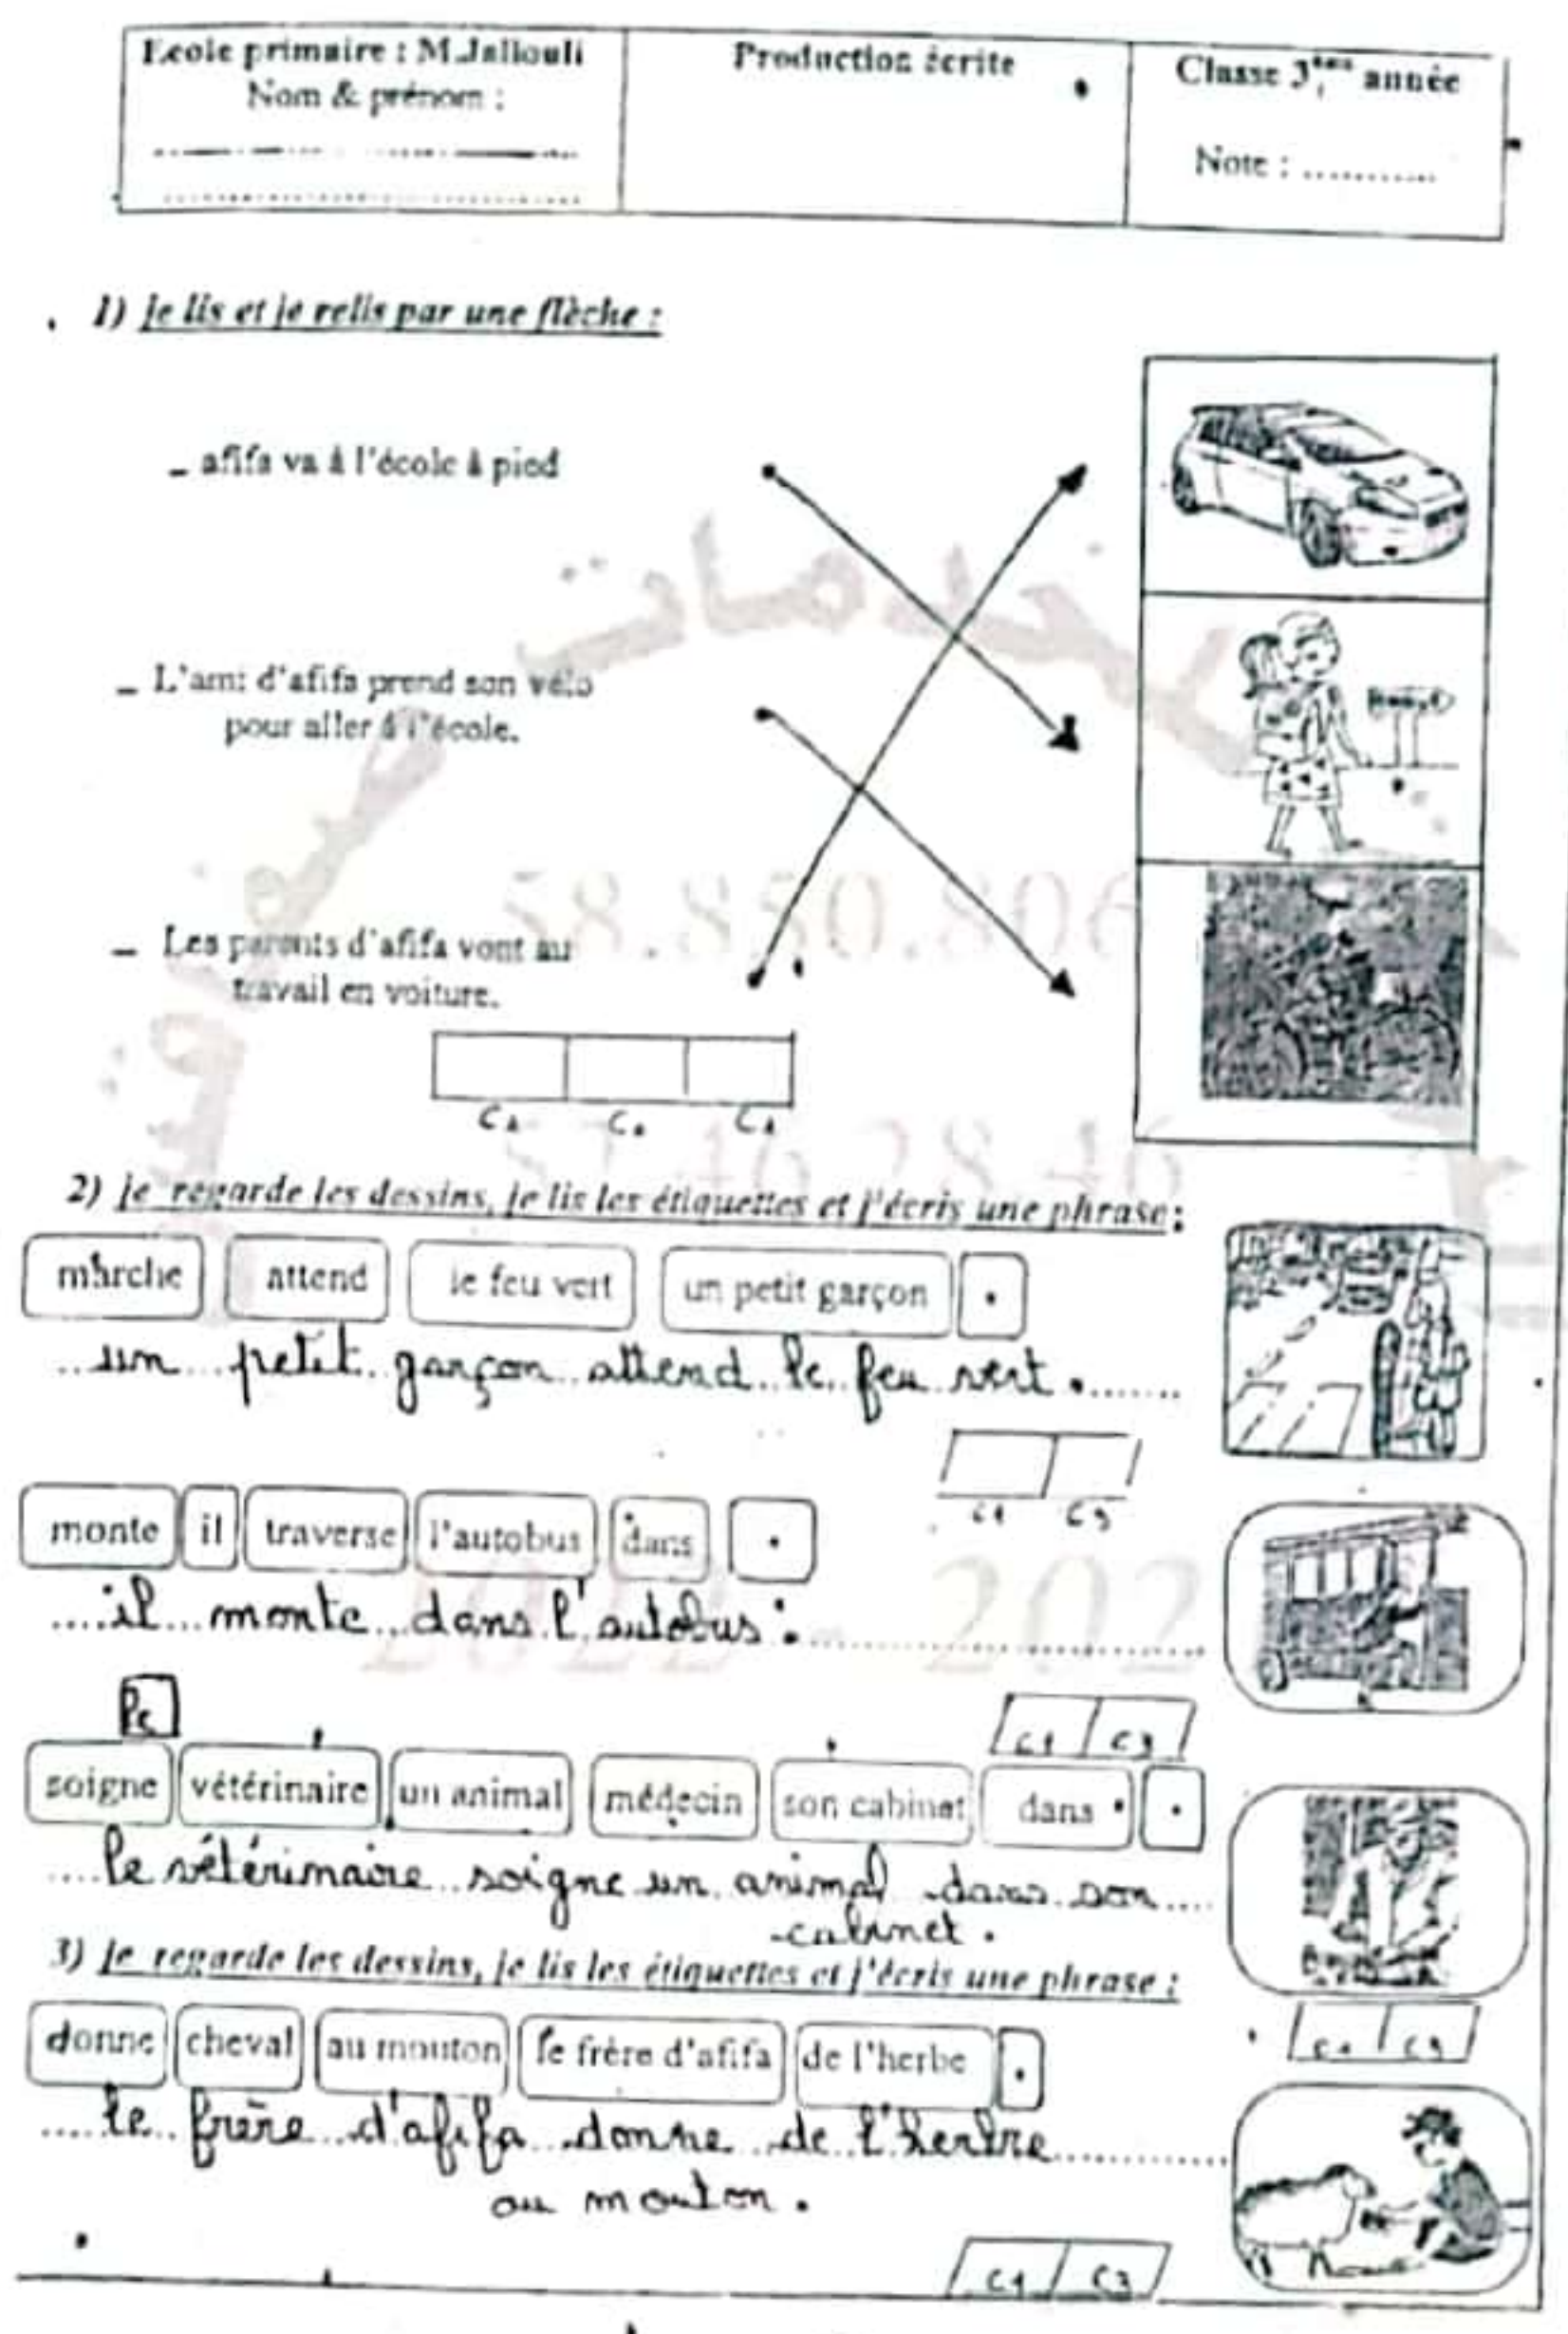 Ecole primaire : M.Jallouli
Nom & prénom :
Production écrite
Classe 3ème année
Note : ...........
1) je lis et je relis par une flèche :
_ afifa va à l'école à pied
_ L'ami d'afifa prend son vélo
pour aller à l'école.
_ Les parents d'afifa vont au
travail en voiture.
58.880.806
C1 C1 C1
2) je regarde les dessins, je lis les étiquettes et j'écris une phrase :
marche attend le feu vert un petit garçon .
un petit garçon attend le feu vert .
C1 C3
monte il traverse l'autobus dans .
il monte dans l'autobus .
C1 C3
le
soigne vétérinaire un animal médecin son cabinet dans .
le vétérinaire soigne un animal dans son
cabinet .
3) je regarde les dessins, je lis les étiquettes et j'écris une phrase :
C1 C3
donne cheval au mouton le frère d'afifa de l'herbe .
le frère d'afifa donne de l'herbe
au mouton .
C1 C3